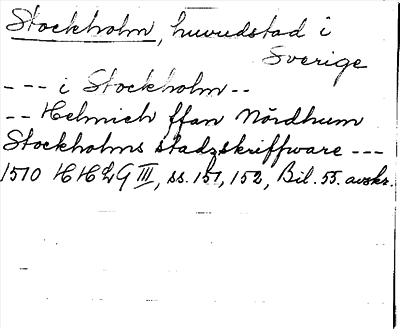 Stockholm, huvudstad i
Sverige
--- i Stockholm --
-- Helmich ffan Nördhum
Stockholms stadzskriffware ---
1510 HH&G III, ss. 151, 152, Bil. 55. avskr.